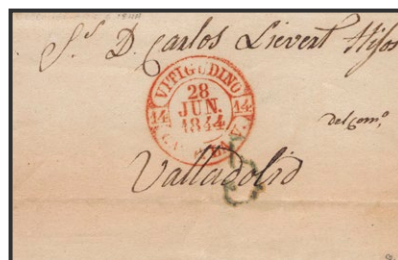 S.r D. Carlos Lievert Hijos
VITIGUDINO
14 28 14
JUN.
1844
del com.o
Valladolid